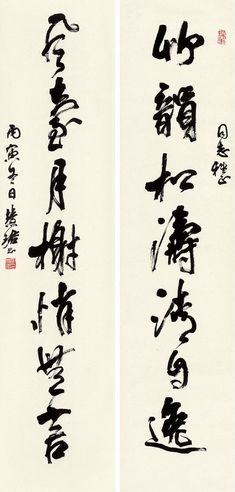 竹韻松濤清自逸
同志雅正
風臺月榭悄無言
丙寅冬日